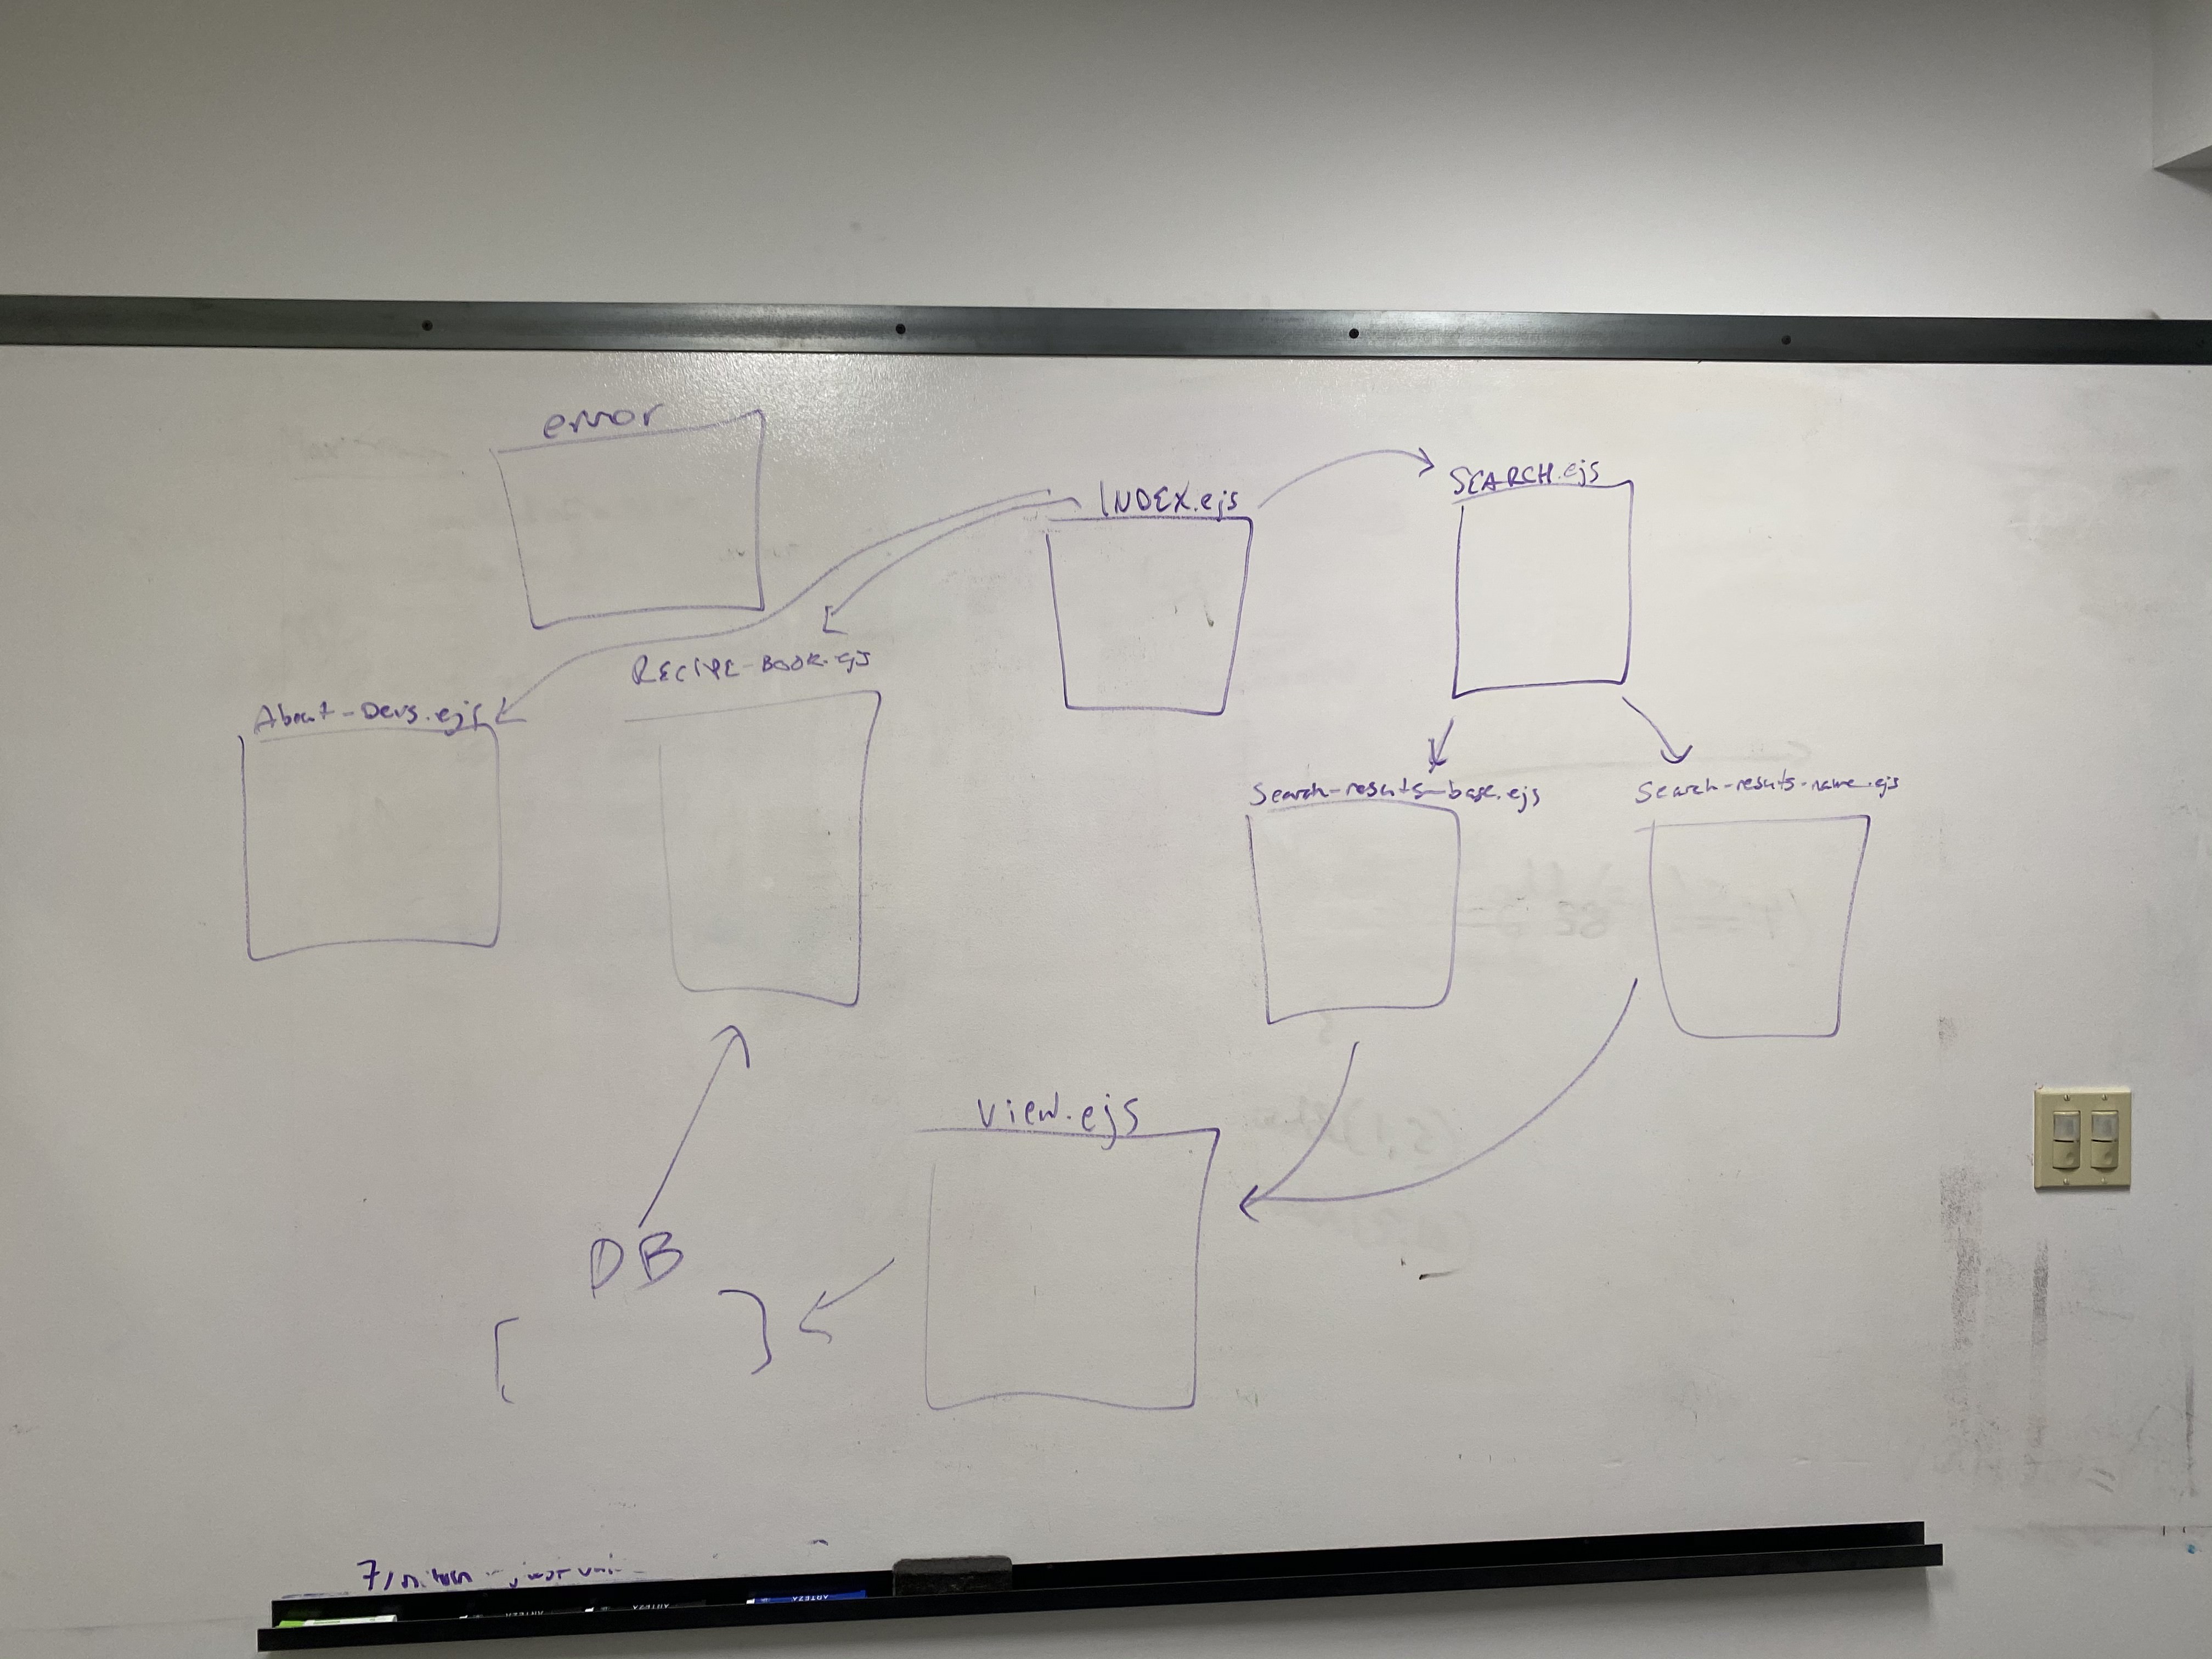 error
INDEX.ejs
SEARCH.ejs
RECIPE-BOOK.ejs
About-Devs.ejs
Search-results-base.ejs
Search-results-name.ejs
View.ejs
DB
ARTEZA
ARTEZA
ARTEZA